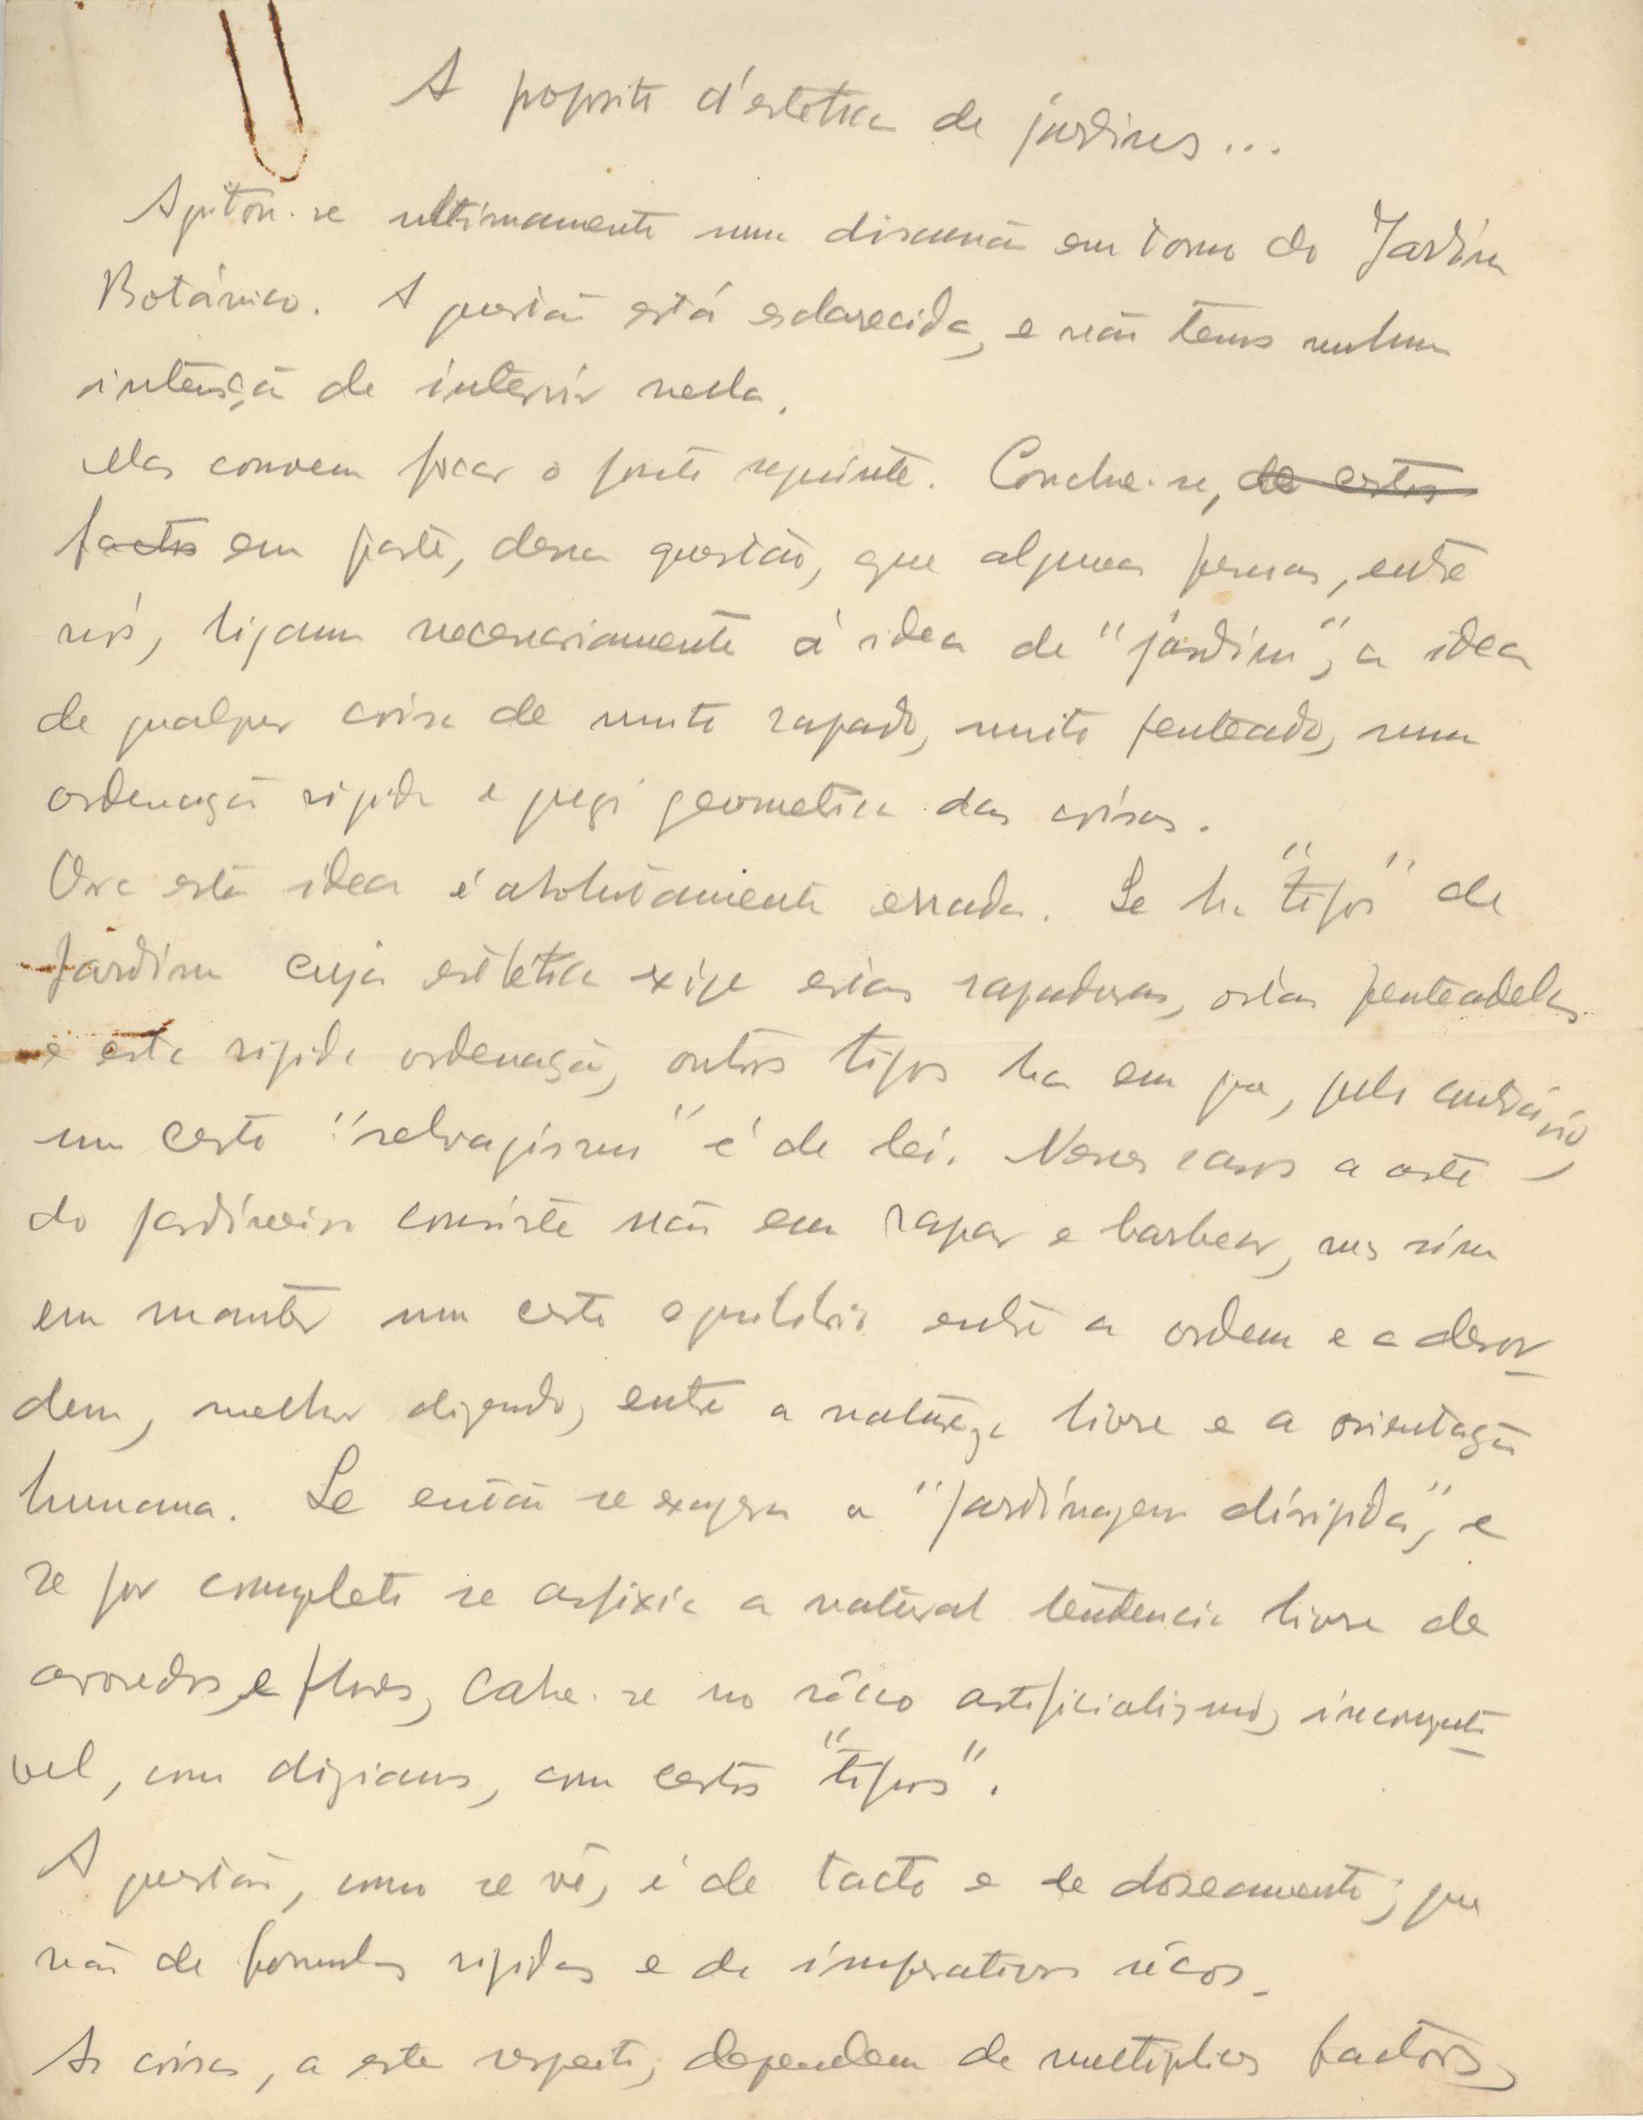 A proposito d'estetica de jardins...
Agitou-se ultimamente uma discussão em torno do Jardim
Botánico. A questão está esclarecida, e não temos nenhuma
intenção de intervir nella.
Mas convem focar o ponto seguinte. Conclue-se, de certos
factos em parte, dessa questão, que algumas pessoas, entre
nós, ligam necessariamente á idea de "jardim", a idea
de qualquer coisa de muito rapado, muito penteado, numa
ordenação rigida e quasi geometrica das coisas.
Ora esta idea é absolutamente errada. Se ha "tipos" de
jardim cuja estética exige essas rapaduras, essas penteadelas
e esta rigida ordenação, outros tipos ha em que, pelo contrário,
um certo "selvagismo" é de lei. Nesses casos a arte
do jardineiro consiste não em rapar e barbear, mas sim
em manter um certo equilibrio entre a ordem e a desor-
dem, melhor dizendo, entre a natureza livre e a orientação
humana. Se então se exagera a "jardinagem dirigida", e
se por completo se asfixia a natural tendencia livre de
arvoredos e flores, cahe-se no sêcco artificialismo, incompati-
vel, como diziamos, com certos "tipos".
A questão, como se vê, é de tacto e de doseamento; que
não de formulas rigidas e de imperativos sêcos.
As coisas, a este respeito, dependem de multiplices factores,